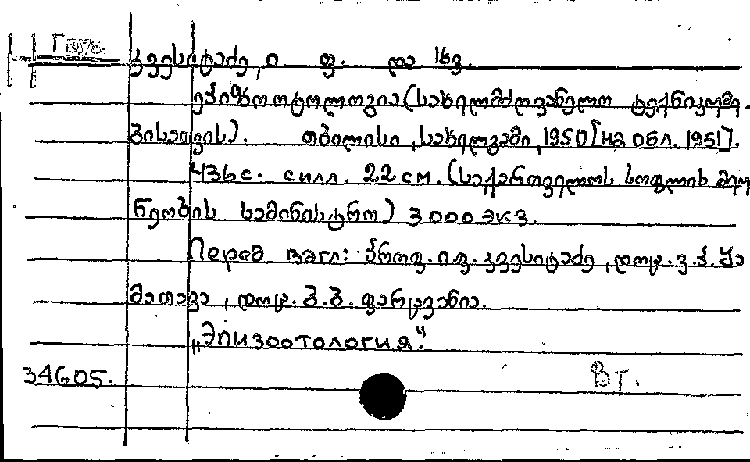 კვესიტაძე, ი. ფ. და სხვ.
ეპიზოოტოლოგია (სახელმძღვანელო ტექნიკუმე-
ბისათვის). თბილისი, სახელგამი, 1950 [на обл. 1951].
436 с. с илл. 22 см. (საქართველოს სოფლის მეურ
ნეობის სამინისტრო) 3000 экз.
Перед загл: პროფ. ი. ფ. კვესიტაძე, დოც. ვ. კ. შა
მათავა, დოც. გ. გ. ფარცვანია.
„Эпизоотология."
34605. ВТ.